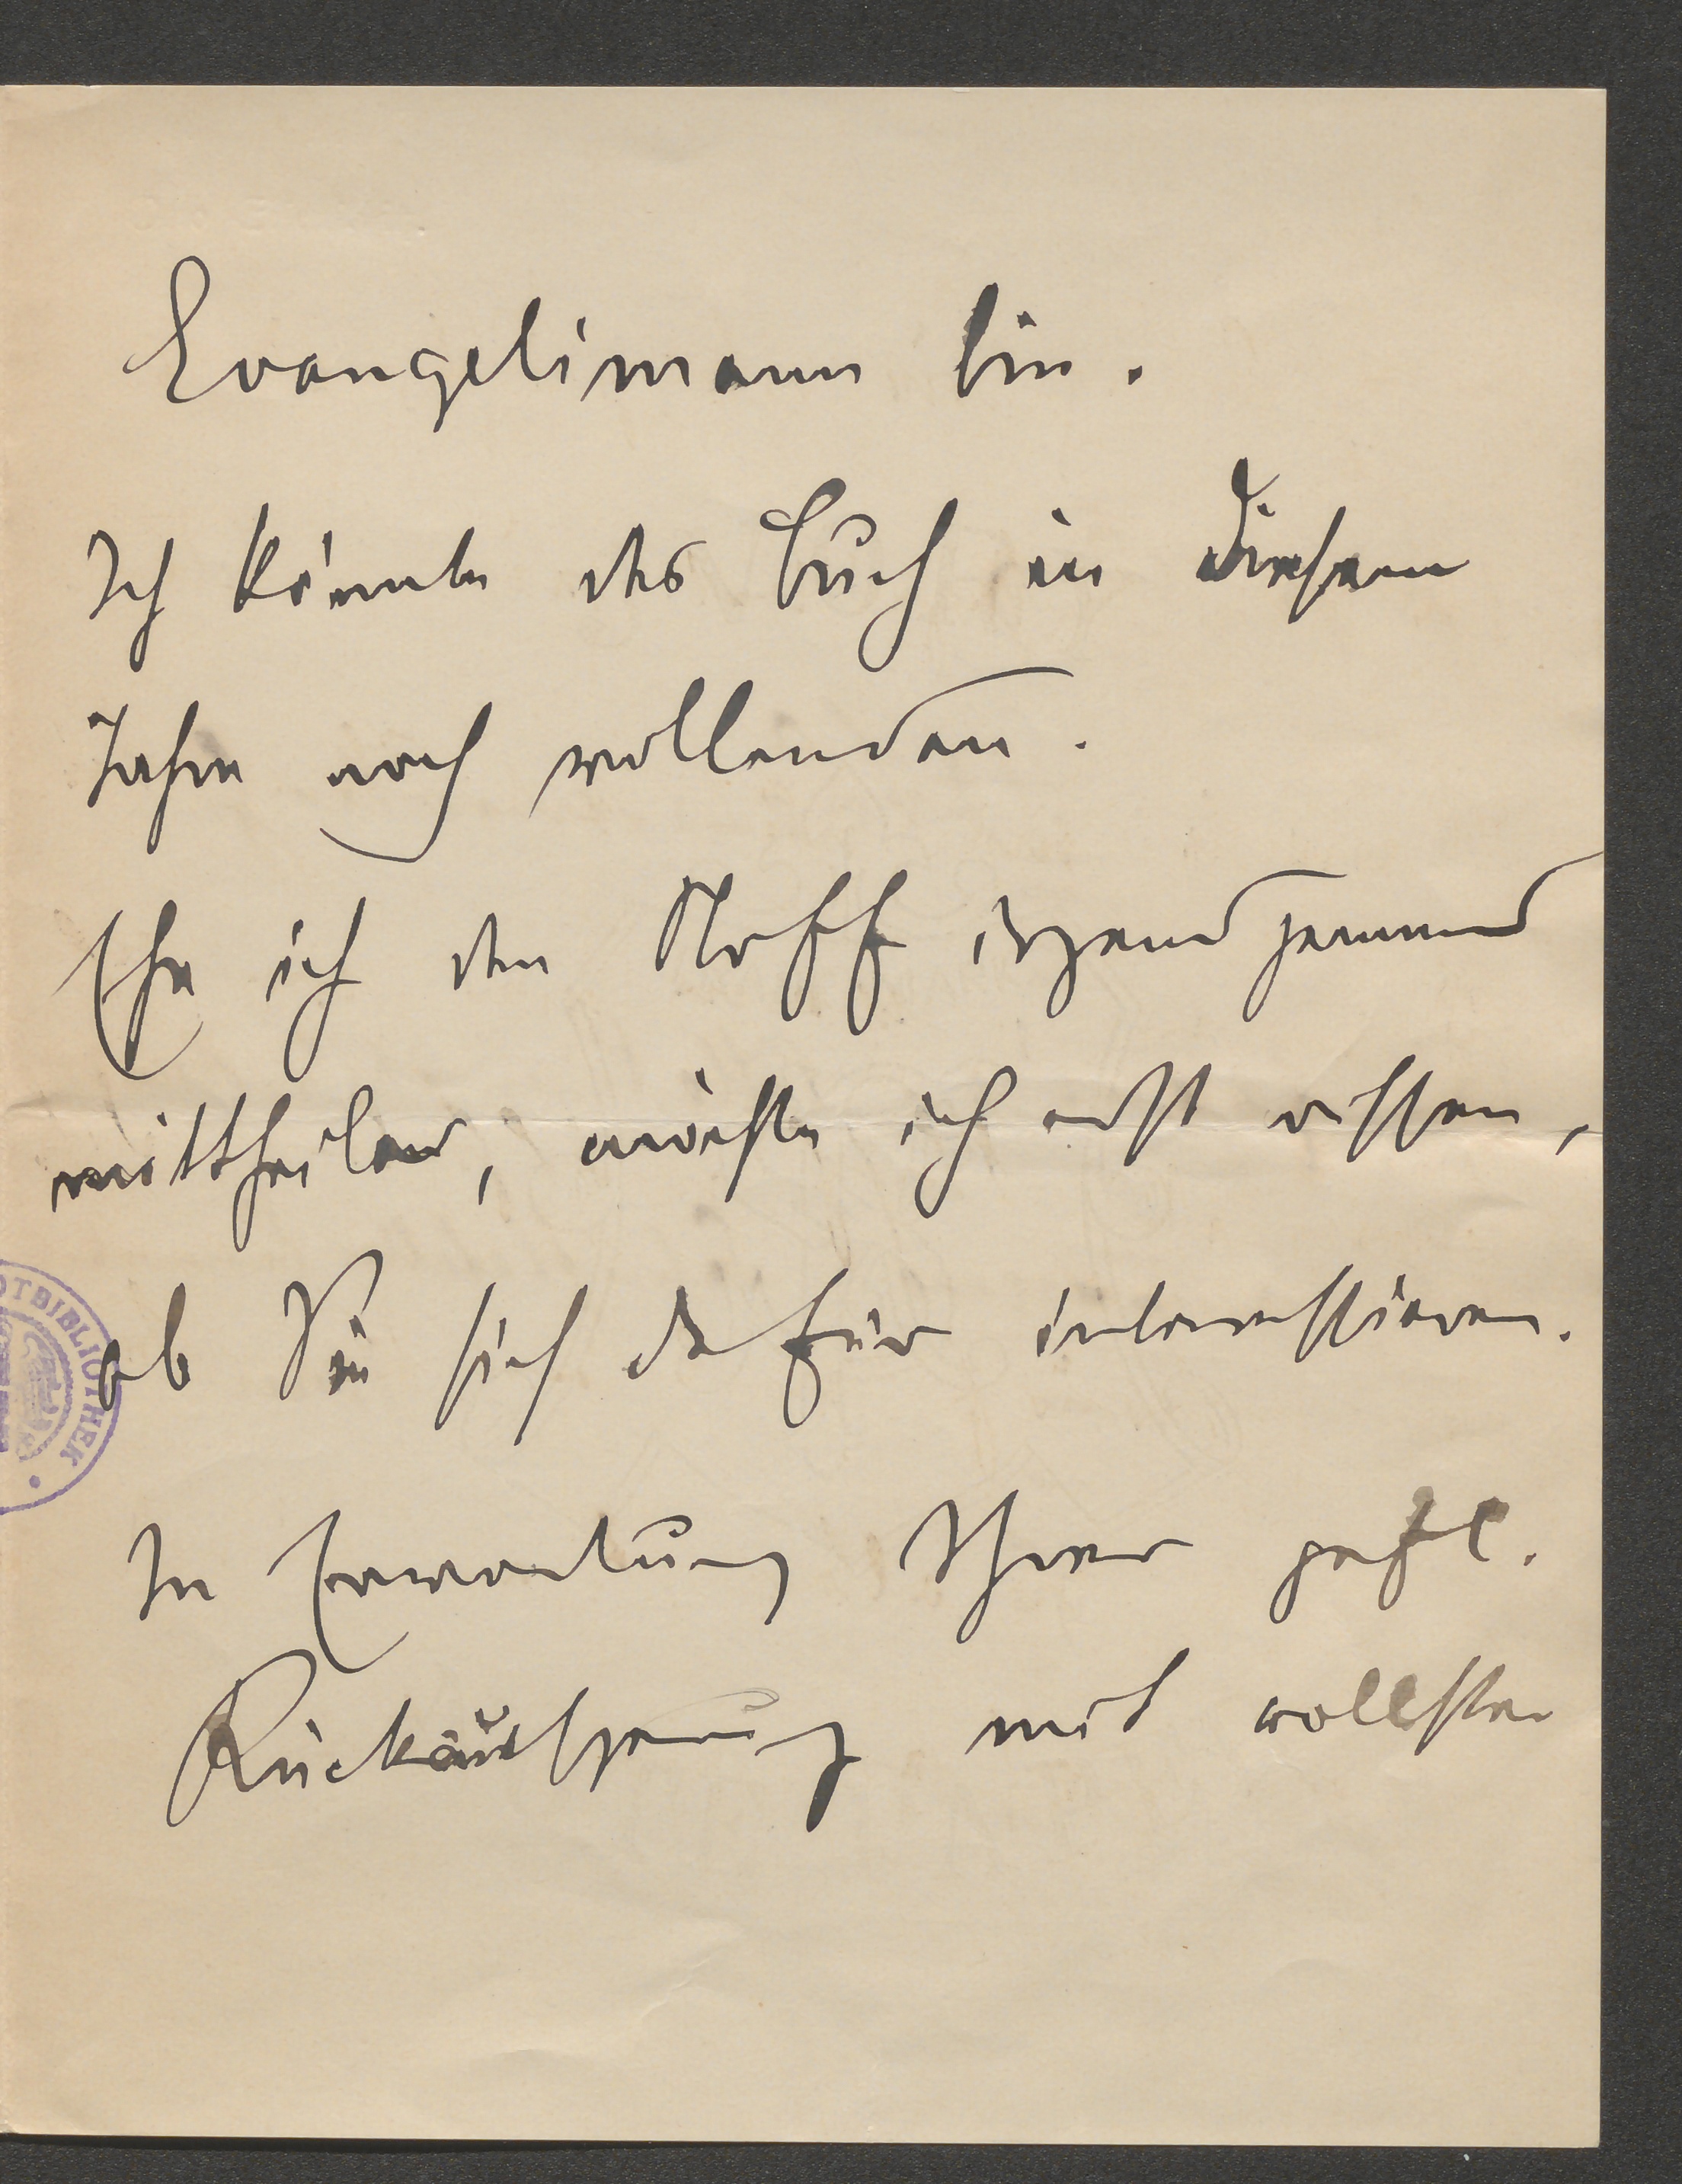 Evangelimann bin.
Ich könnte das Buch in diesem
Jahre noch vollenden.
Ehe ich den Stoff irgend jemand
mittheilen, möchte ich erst wissen,
ob Sie sich dafür interessieren.
In Erwartung Ihrer gefl.
Rückäußerung mit vollster
OTBIBLIOTHEK